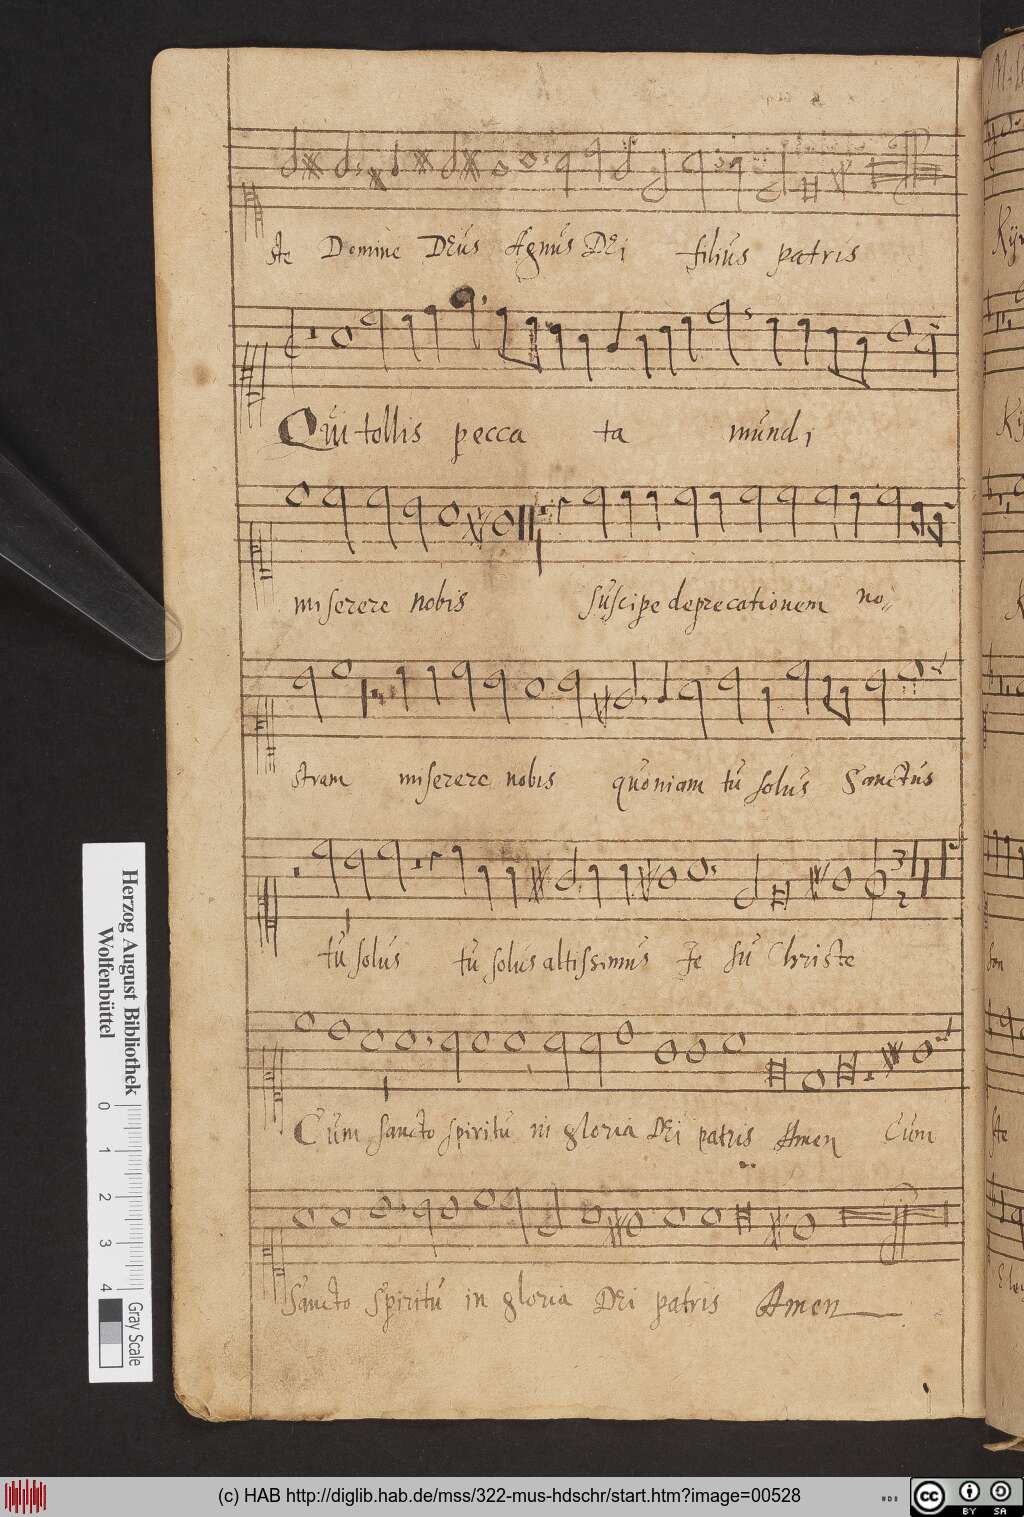 ste Domine DEus Agnus DEi filius patris
Qui tollis pecca ta mundi
miserere nobis suscipe deprecationem no
stram miserere nobis quoniam tu solus Sanctus
tu solus tu solus altissimus Je su Christe
3
2
Cum sancto spiritu in gloria DEi patris Amen Cum
Sancto Spiritu in gloria DEi patris Amen
Herzog August Bibliothek
Wolfenbüttel
0 1 2 3 4
Gray Scale
(c) HAB http://diglib.hab.de/mss/322-mus-hdschr/start.htm?image=00528
cc BY SA